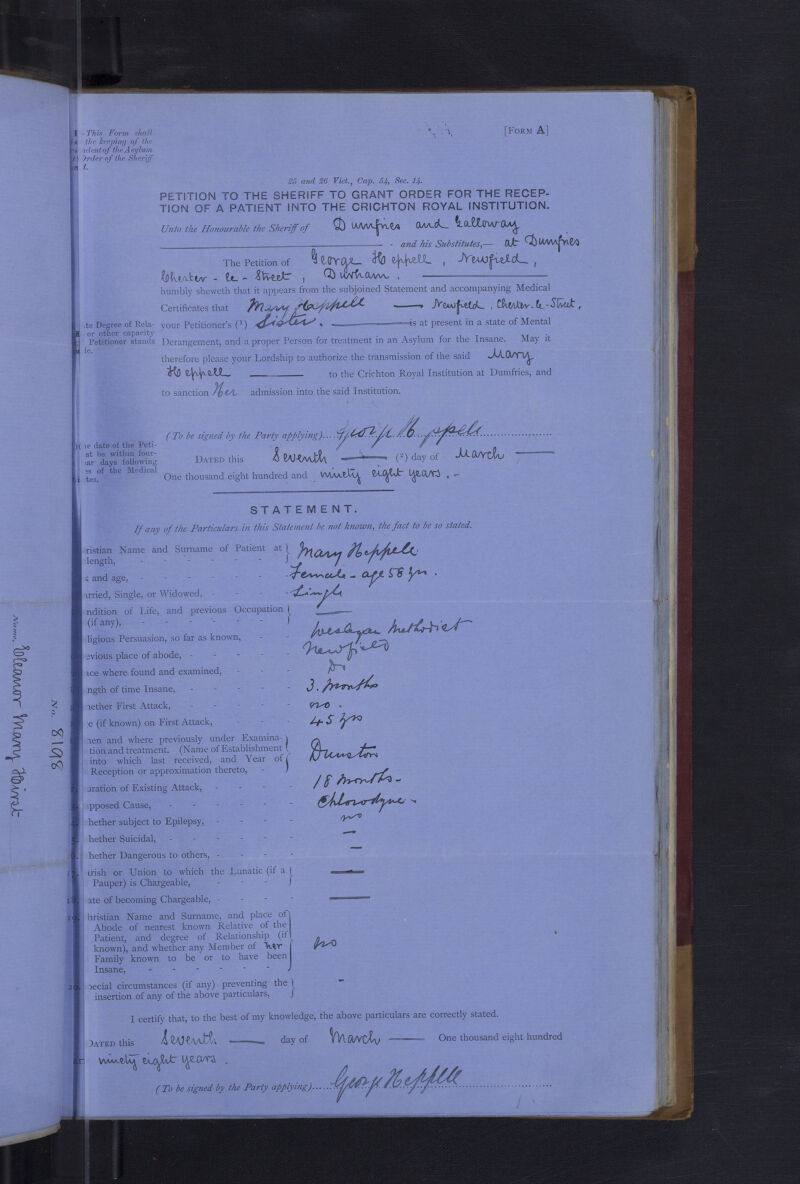 This Form shall
the keeping of the
dent of the Asylum
Order of the Sheriff
[FORM A]
25 and 26 Vict., Cap. 54, Sec. 14.
PETITION TO THE SHERIFF TO GRANT ORDER FOR THE RECEP-
TION OF A PATIENT INTO THE CRICHTON ROYAL INSTITUTION.
Unto the Honourable the Sheriff of Dumfries and Galloway
- and his Substitutes,— at Dumfries
The Petition of George Heppell, Newfield,
Chester-le-Street, Durham.
humbly sheweth that it appears from the subjoined Statement and accompanying Medical
Certificates that Mary Heppell Newfield, Chester-le-Street,
te Degree of Rela-
or other capacity
Petitioner stands
your Petitioner's (1) Sister. is at present in a state of Mental
Derangement, and a proper Person for treatment in an Asylum for the Insane. May it
therefore please your Lordship to authorize the transmission of the said Mary
Heppell to the Crichton Royal Institution at Dumfries, and
to sanction Her admission into the said Institution.
(To be signed by the Party applying) George Heppell
e date of the Peti-
st be within four-
ar days following
es of the Medical
tes.
DATED this Seventh (2) day of March
One thousand eight hundred and ninety eight years. -
STATEMENT.
If any of the Particulars in this Statement be not known, the fact to be so stated.
ristian Name and Surname of Patient at
length, Mary Heppell
and age, Female - age 58 yrs.
arried, Single, or Widowed, Single
ndition of Life, and previous Occupation
(if any),
ligious Persuasion, so far as known, Wesleyan Methodist
evious place of abode, Newfield
ace where found and examined, Do
ngth of time Insane, 3. Months
hether First Attack, no.
e (if known) on First Attack, 45 yrs
hen and where previously under Examina-
tion and treatment. (Name of Establishment
into which last received, and Year of
Reception or approximation thereto, - Dunston
uration of Existing Attack, 18 Months -
upposed Cause, Chlorodyne -
hether subject to Epilepsy, no
hether Suicidal, —
hether Dangerous to others, —
arish or Union to which the Lunatic (if a
Pauper) is Chargeable, —
ate of becoming Chargeable, —
hristian Name and Surname, and place of
Abode of nearest known Relative of the
Patient, and degree of Relationship (if
known), and whether any Member of her
Family known to be or to have been
Insane, no
pecial circumstances (if any) preventing the
insertion of any of the above particulars, -
I certify that, to the best of my knowledge, the above particulars are correctly stated.
DATED this Seventh day of March One thousand eight hundred
ninety eight years.
(To be signed by the Party applying) George Heppell
Name, Eleanor Mary Hirst
No. 8198